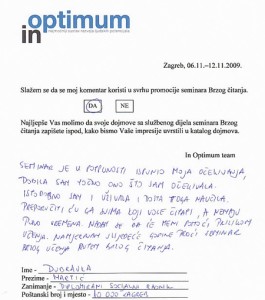 in optimum
Zagreb, 06.11.-12.11.2009.
Slažem se da se moj komentar koristi u svrhu promocije seminara Brzog čitanja.
DA NE
Najljepše Vas molimo da svoje dojmove sa službenog dijela seminara Brzog
čitanja zapišete ispod, kako bismo Vaše impresije uvrstili u katalog dojmova.
In Optimum team
SEMINAR JE U POTPUNOSTI ISPUNIO MOJA OČEKIVANJA,
DOBILA SAM TOČNO ONO ŠTO SAM OČEKIVALA.
SAM I UŽIVALA I DOSTA TOGA NAUČILA.
PREPORUČIT ĆU GA SVIMA KOJI VOLE ČITATI, A NEMAJU
PUNO VREMENA. NADAM SE DA ĆE MENI POMOĆI PRILIKOM
UČENJA. NAMJERAVAM SLJEDEĆE GODINE PROĆI SEMINAR
BRZOG UČENJA PUTEM BRZOG ČITANJA.
Ime - DUBRAVKA
Prezime - MARTIĆ
Zanimanje - DIPLOMIRANI SOCIJALNI RADNIK
Poštanski broj i mjesto - 10 000 ZAGREB